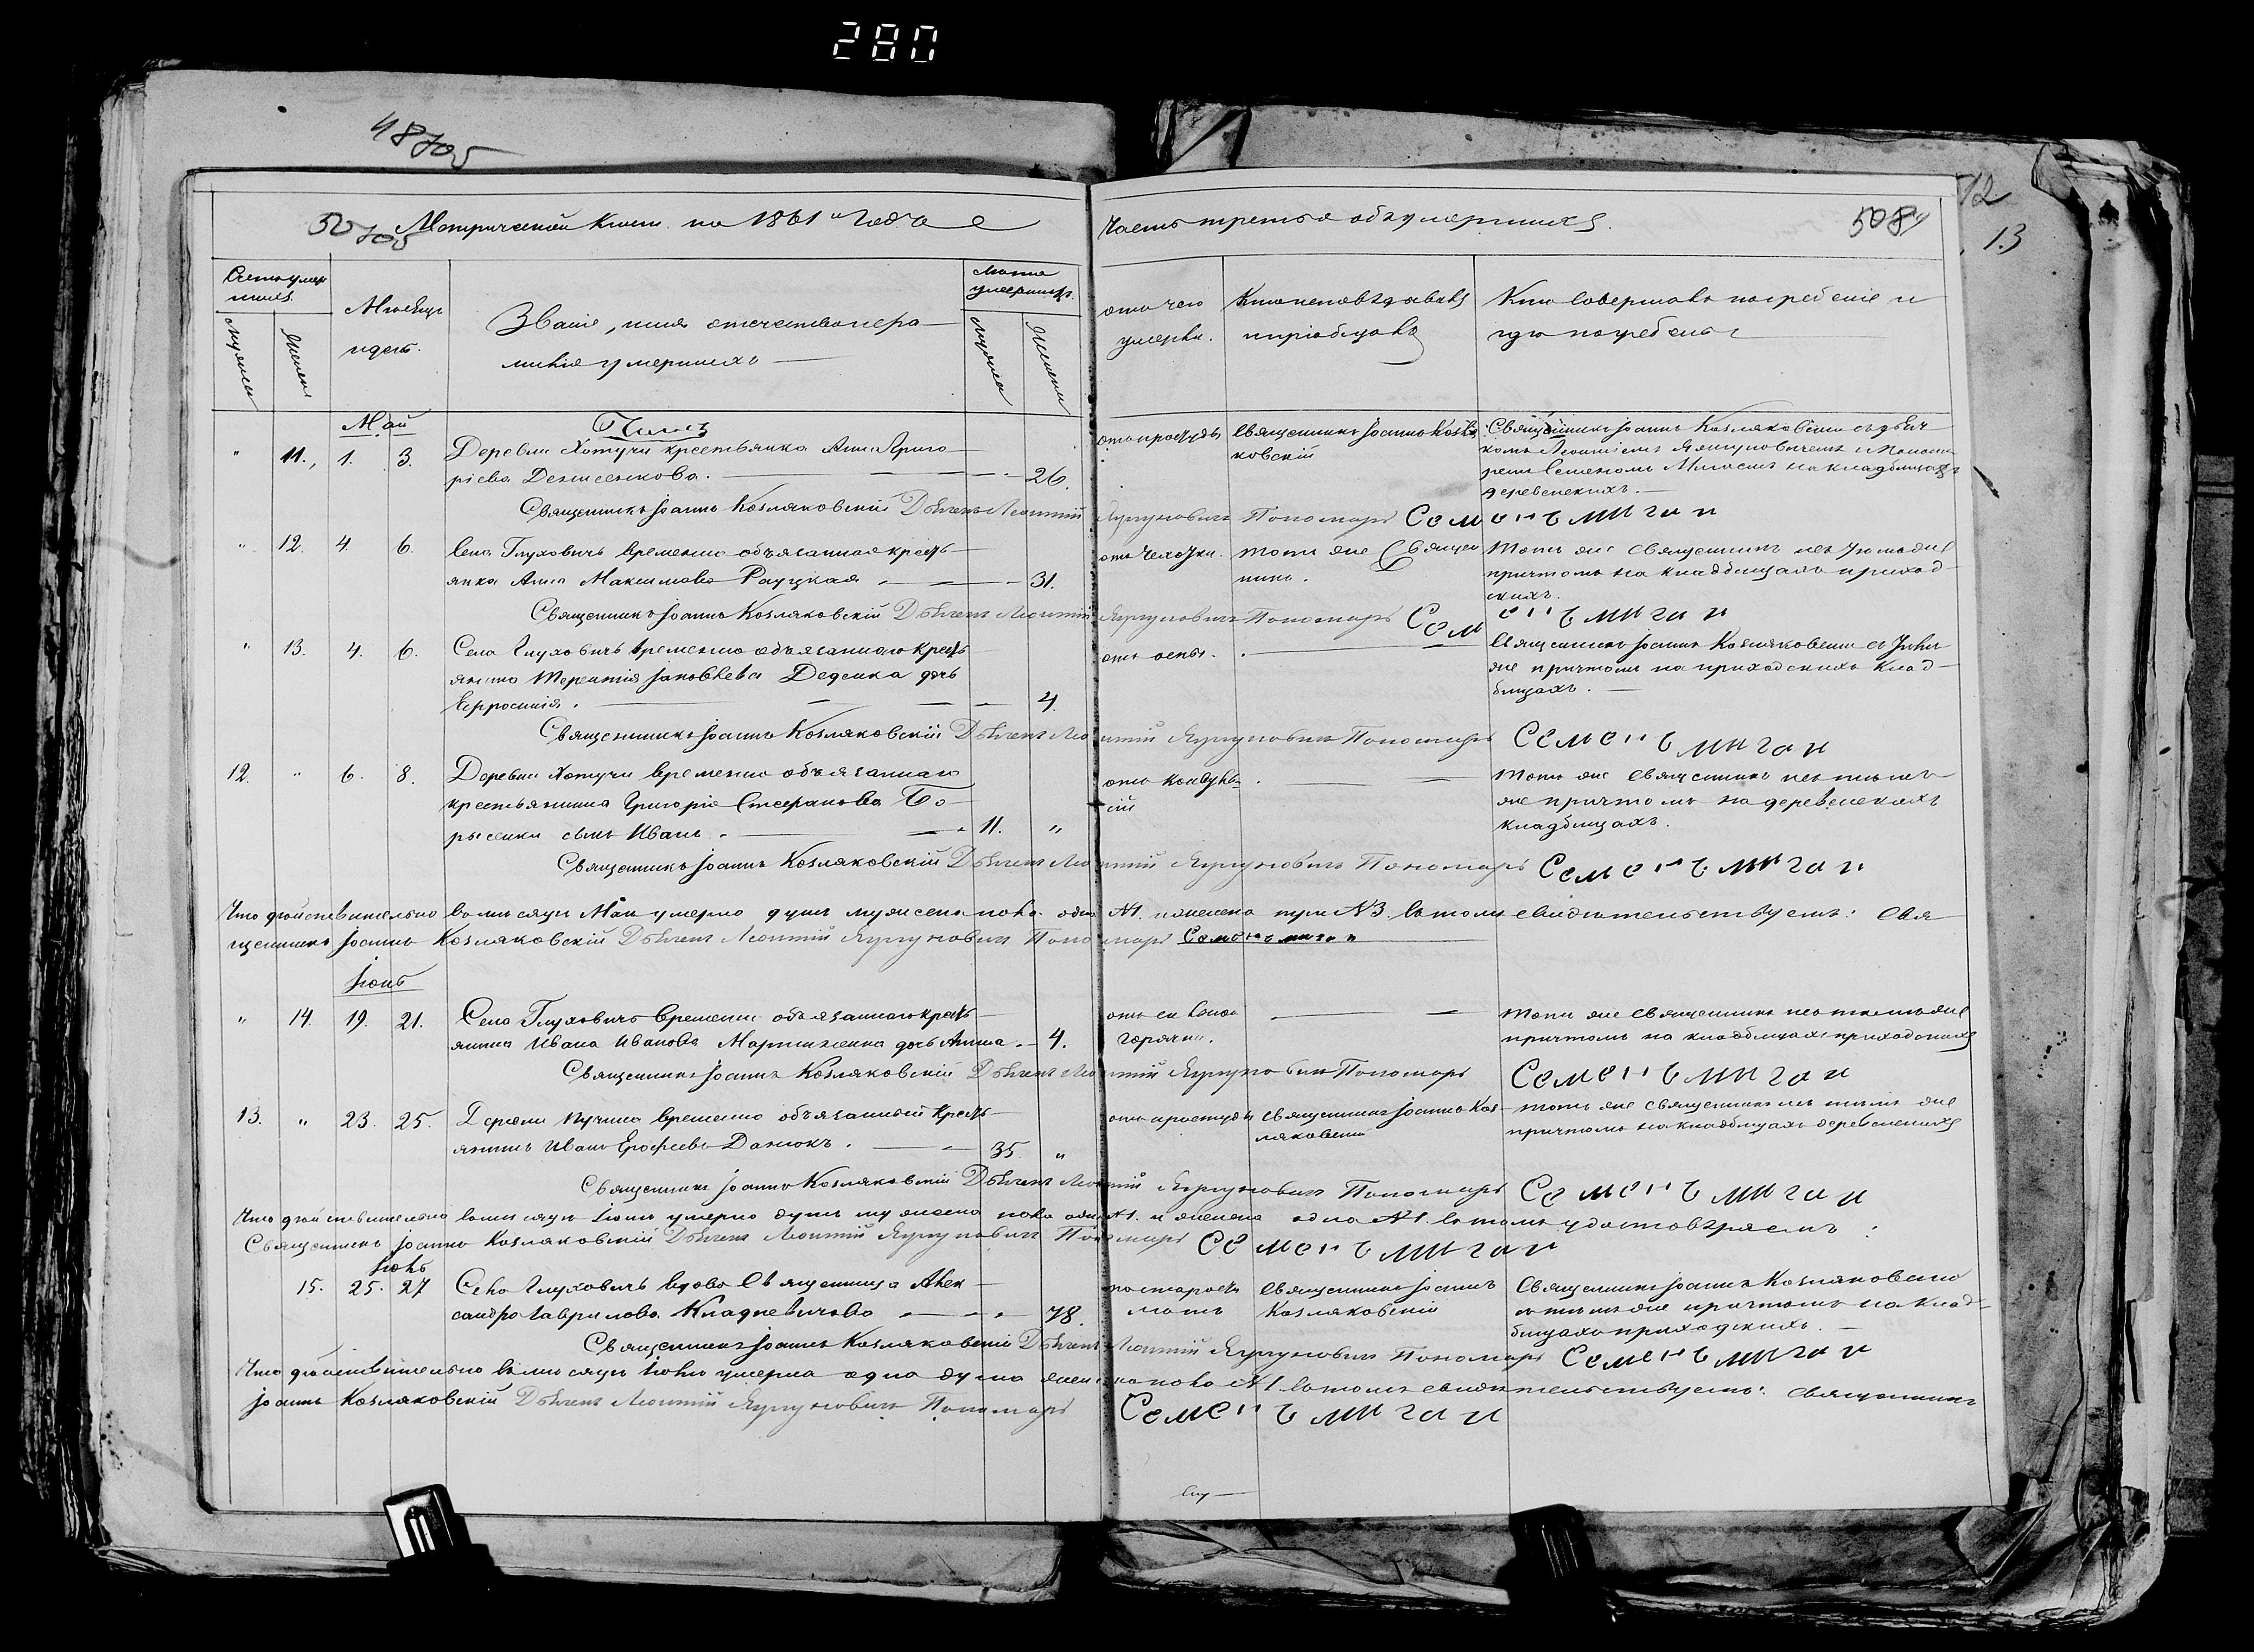 280
48 705
12
13
50 705 Метрической Книги на 1861й Годъ
Часть третья объ умершихъ.
508
Счетъ умершихъ.
Мужеска
Женска
Мѣсяцъ и день.
Званіе, имя отечество и фамилія умершихъ
Лѣта умершихъ.
Мужеска
Женска
отъ чего умерли.
Кто исповѣдывалъ и пріобщалъ
Кто совершалъ погребеніе и гдѣ погребены
Май
" 11. 1. 3. Деревни Хотучи крестьянка Анна Григо-
рьева Денисенкова. 26.
отъ простуды
Священникъ Іоаннъ Козля-
ковскій
Священникъ Іоаннъ Козляковскій съ дьяч-
комъ Леонтіемъ Яхгуновичемъ и Понома-
ремъ Семеномъ Мигаемъ на кладбищахъ
деревенскихъ.
Священникъ Іоаннъ Козляковскій Дьячекъ Леонтій Пономарь Семенъ мигай
" 12. 4. 6. Села Глуховичъ временно обязанная кресть-
янка Анна Максимова Рауцкая 31.
отъ чехотки.
тотъ же Священ-
никъ.
Тотъ же священникъ съ тѣмъ же
причтомъ на кладбищахъ приход-
скихъ.
Священникъ Іоаннъ Козляковскій Дьячекъ Леонтій Пономарь Семенъ мигай
" 13. 4. 6. Села Глуховичъ временно обязаннаго кресть-
янина Терентія Іаковлева Деденка дочь
Евфросинія. 4.
отъ оспы.
Священникъ Іоаннъ Козляковскій съ тѣмъ
же причтомъ на приходскихъ клад-
бищахъ.
Священникъ Іоаннъ Козляковскій Дьячекъ Леонтій Пономарь Семенъ мигай
12. " 6. 8. Деревни Хотучи временно обязаннаго
крестьянина Григорія Стефанова Бо-
рысенки сынъ Иванъ. 11. "
отъ конвуль-
сій
Тотъ же священникъ съ тѣмъ
же причтомъ на деревенскихъ
кладбищахъ.
Священникъ Іоаннъ Козляковскій Дьячекъ Леонтій Пономарь Семенъ мигай
Что дѣйствительно въ мѣсяцѣ Маѣ умерло душъ мужеска пола одна №1. и женска три №3. въ томъ свидѣтельствуемъ: Свя-
щенникъ Іоаннъ Козляковскій Дьячекъ Леонтій Пономарь Семенъ мигай
Іюнь
" 14. 19. 21. Села Глуховичъ временно обязаннаго кресть-
янина Ивана Иванова Мартиненка дочь Анна. 4.
отъ сильной
горячки.
тотъ же священникъ съ тѣмъ же
причтомъ на кладбищахъ приходскихъ
Священникъ Іоаннъ Козляковскій Дьячекъ Леонтій Пономарь Семенъ мигай
13. " 23. 25. Деревни временно обязанный кресть-
янинъ Иванъ Ерофеевъ Данюкъ. 35. "
отъ простуды
Священникъ Іоаннъ Коз-
ляковскій
тотъ же священникъ съ тѣмъ же
причтомъ на кладбищахъ деревенскихъ
Священникъ Іоаннъ Козляковскій Дьячекъ Леонтій Пономарь Семенъ мигай
Что дѣйствительно въ мѣсяцѣ Іюнѣ умерло душъ мужеска пола одна №1. и женска одна №1. въ томъ удостовѣряемъ:
Священникъ Іоаннъ Козляковскій Дьячекъ Леонтій Пономарь Семенъ мигай
Іюль
15. 25. 27 Села Глуховичъ вдова Священница Алек-
сандра Гаврилова Кладкевичова 78.
по старости
лѣтъ
Священникъ Іоаннъ
Козляковскій
Священникъ Іоаннъ Козляковскій
съ тѣмъ же причтомъ на клад-
бищахъ приходскихъ.
Священникъ Іоаннъ Козляковскій Дьячекъ Леонтій Пономарь Семенъ мигай
Что дѣйствительно въ мѣсяцѣ Іюлѣ умерла одна душа женска пола №1 въ томъ свидѣтельствуемъ: Священникъ
Іоаннъ Козляковскій Дьячекъ Леонтій Пономарь Семенъ мигай